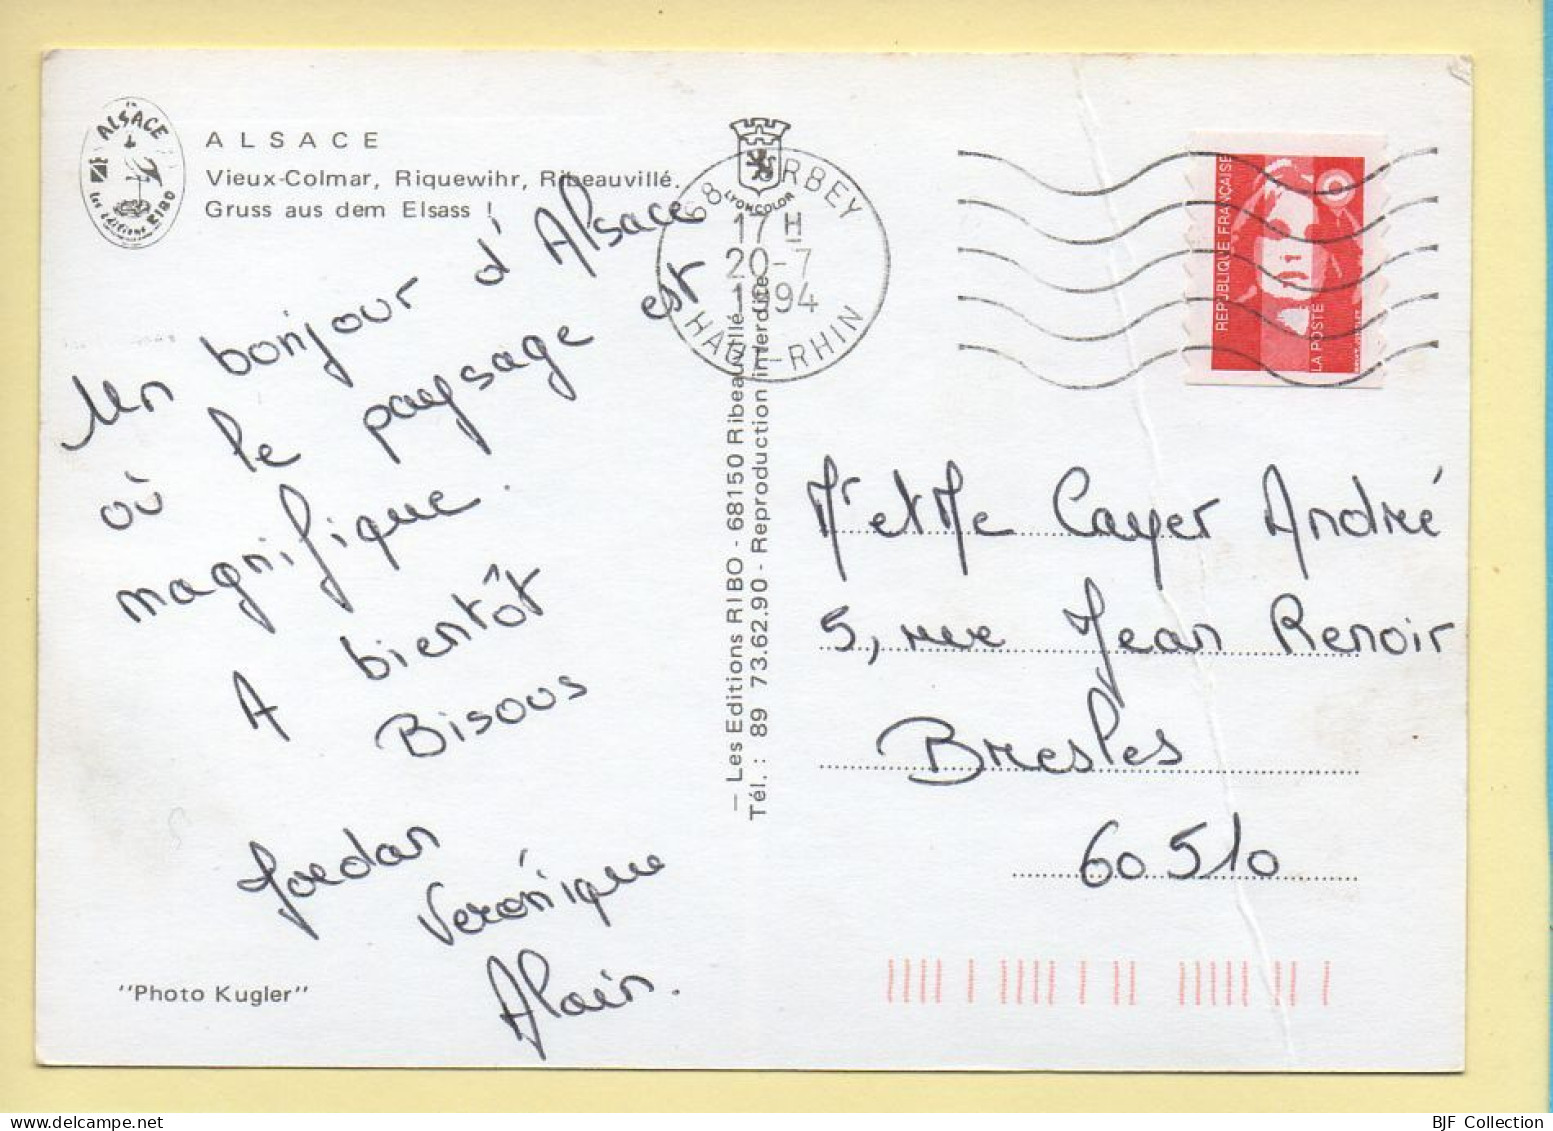 ALSACE
les éditions RIBO
ALSACE
Vieux-Colmar, Riquewihr, Ribeauvillé.
Gruss aus dem Elsass !
Un bonjour d'Alsace
où le paysage est
magnifique.
A bientôt
Bisous
Jordan
Véronique
Alain.
"Photo Kugler"
LYONCOLOR
68 ORBEY
17 H
20-7
1994
HAUT-RHIN
— Les Editions RIBO - 68150 Ribeauvillé
Tél. : 89 73.62.90 - Reproduction interdite
REPUBLIQUE FRANÇAISE
LA POSTE
Mr et Me Cayer André
5, rue Jean Renoir
Bresles
60510
BJF Collection